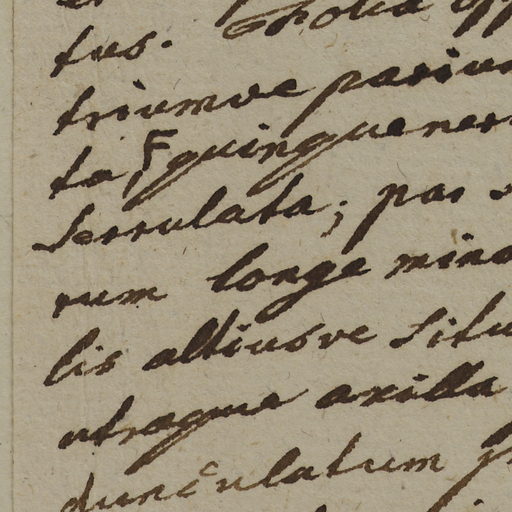 tus. Folia opp
triumve pariu
ta, F quinquener
serrulata; par s
rum longe mino
lis altiusve situ
utraque axilla
dunculatum